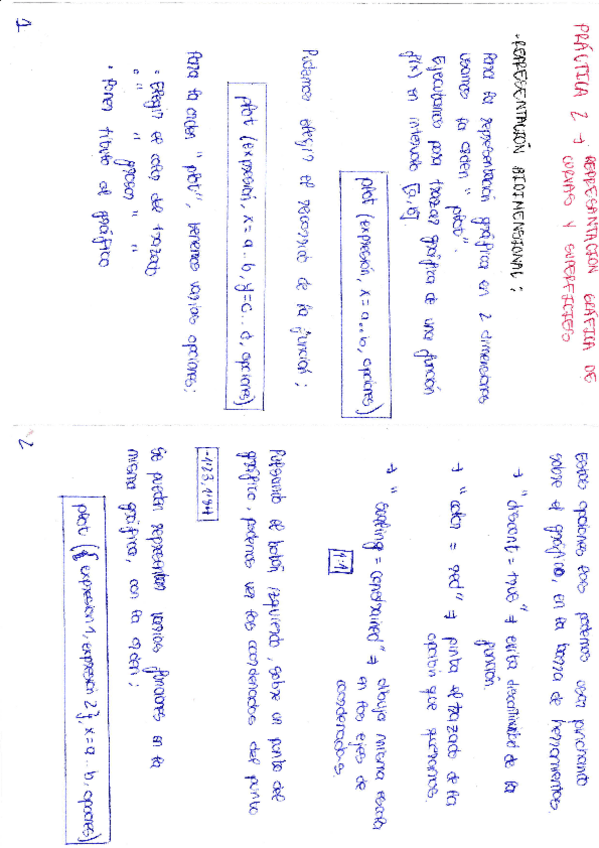 PRÁCTICA 2 → REPRESANTACION GRÁFICA DE
CURVAS Y SUPERFICIES
-REPRESENTACIÓN BIDIMENSIONAL:
Para la representación gráfica en 2 dimensiones
usamos la orden "plot".
Ejecutamos para trazar gráfica de una función
f(x) en intervalo [a,b].
plot (expresión, x=a..b, opciones)
Podemos elegir el recorrido de la función:
plot (expresión, x=a..b, y=c..d, opciones)
Para la orden "plot", tenemos varias opciones:
• Elegir el color del trazado
• " " grosor " "
• Poner título al gráfico
1
Estas opciones las podemos usar pinchando
sobre el gráfico, en la barra de herramientas.
→ "discont = true" → evita discontinuidad de la
función.
→ "color = red" → pinta el trazado de la
opción que queramos.
→ "scaling = constrained" → dibuja misma escala
en los ejes de
coordenadas.
1:1
Pulsando el botón izquierdo, sobre un punto del
gráfico, podemos ver las coordenadas del punto
-1123, 1194
Se pueden representar varias funciones en la
misma gráfica, con la orden:
plot ({expresión 1, expresión 2}, x=a..b, opciones)
2